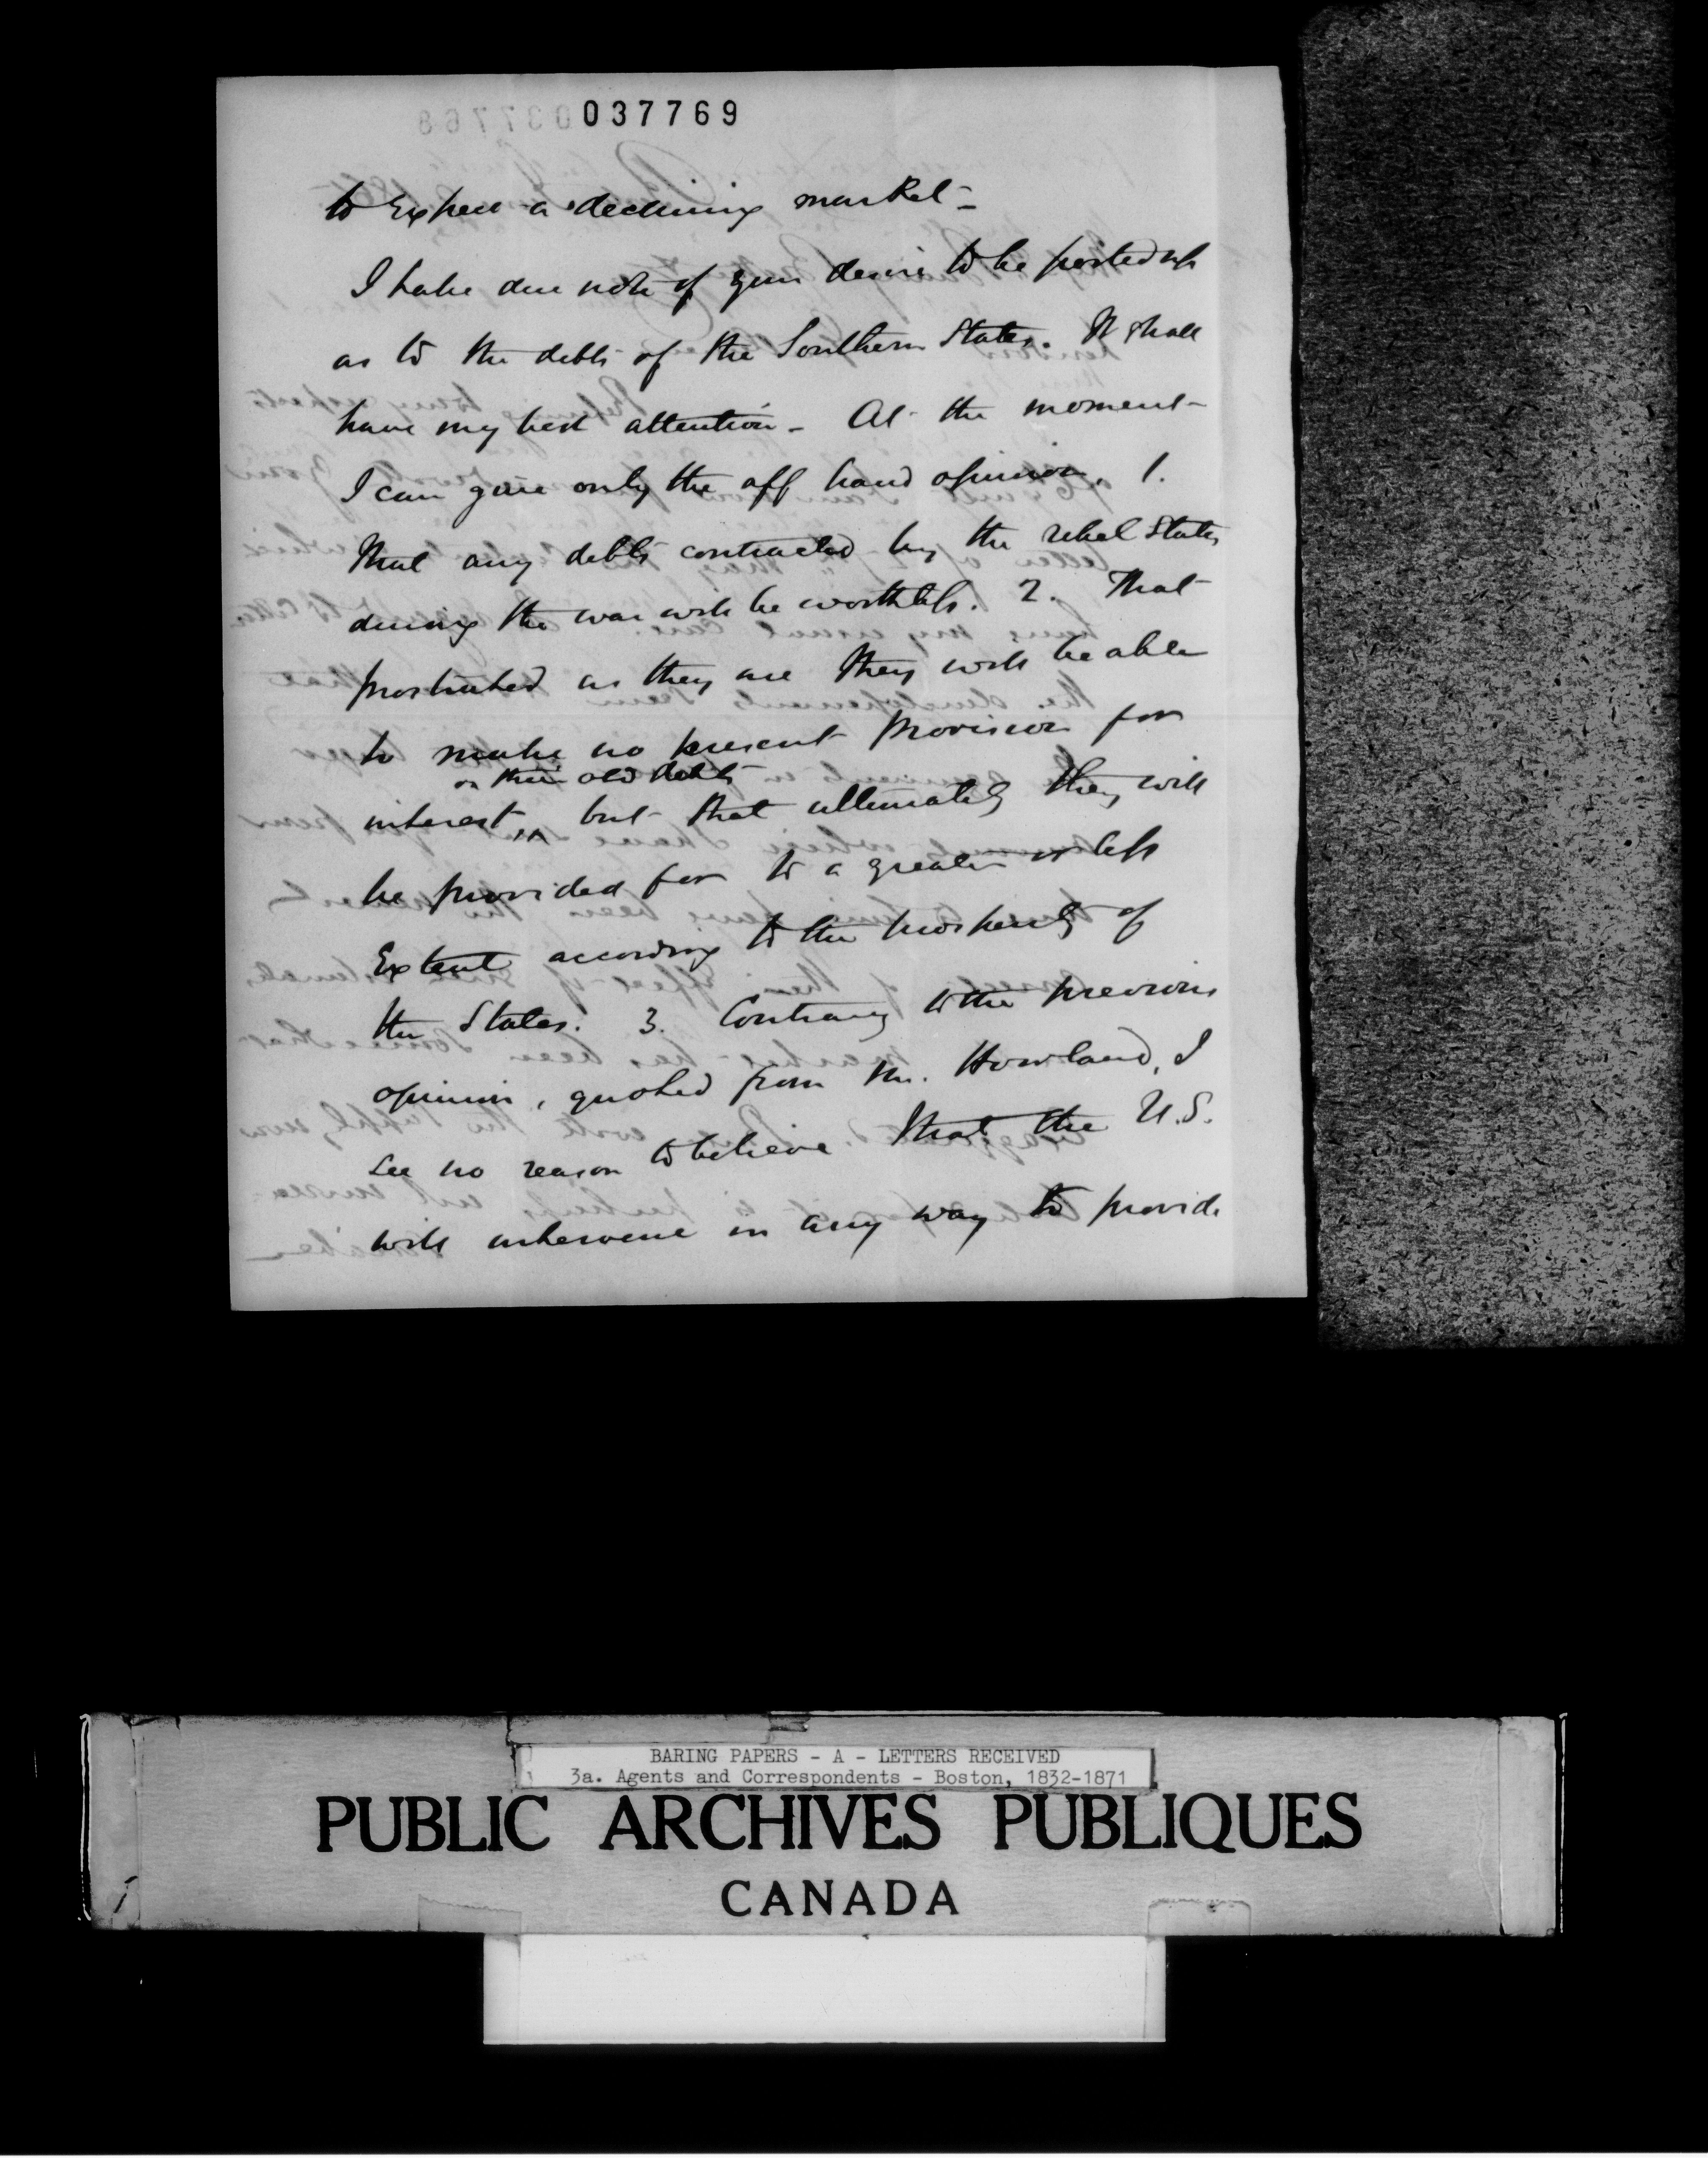 037769
to Expect a declining market -
I take due note of your desire to be posted up
as to the debts of the Southern States. It shall
have my best attention - At the moment
I can give only the off hand opinion, 1.
That any debts contracted by the rebel States
during the war will be worthless. 2. That
prostrated as they are they will be able
to make no present provision for
on their old debts
interest, but that ultimately they will
be provided for to a greater or less
Extent according to the prosperity of
the States. 3. Contrary to the previous
opinion, quoted from Mr. Howland, I
see no reason to believe that the U.S.
will intervene in any way to provide
BARING PAPERS - A - LETTERS RECEIVED
3a. Agents and Correspondents - Boston, 1832-1871
PUBLIC ARCHIVES PUBLIQUES
CANADA